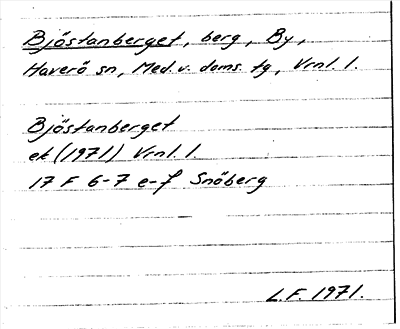 Bjöstanberget, berg, By,
Haverö sn, Med.v. doms. tg, Vrnl. l.
Bjöstanberget
ek (1971) Vrnl. l.
17 F 6-7 e-f Snöberg
L.F. 1971.